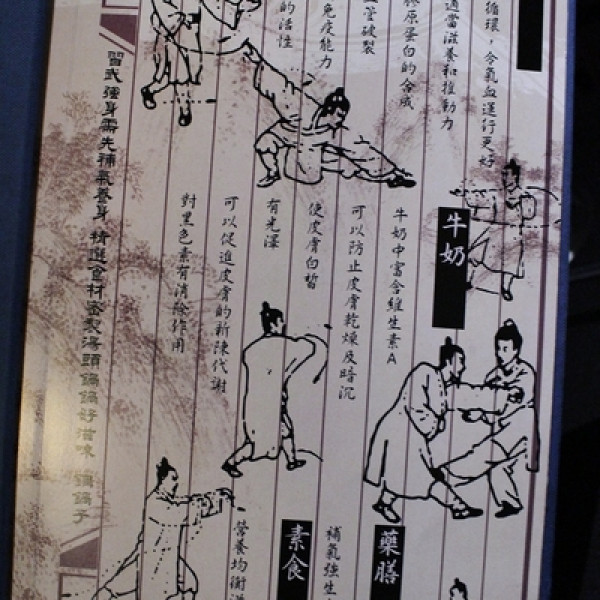 循環，令氣血運行更好
適當滋養和推動力
膠原蛋白的合成
管破裂
免疫能力
的活性
牛奶
牛奶中富含維生素A
可以防止皮膚乾燥及暗沉
使皮膚白皙
有光澤
可以促進皮膚的新陳代謝
對黑色素有消除作用
藥膳
補氣強生
素食
營養均衡
習武強身需先補氣養身 精選食材密製湯頭鍋鍋好滋味 鍋鍋子